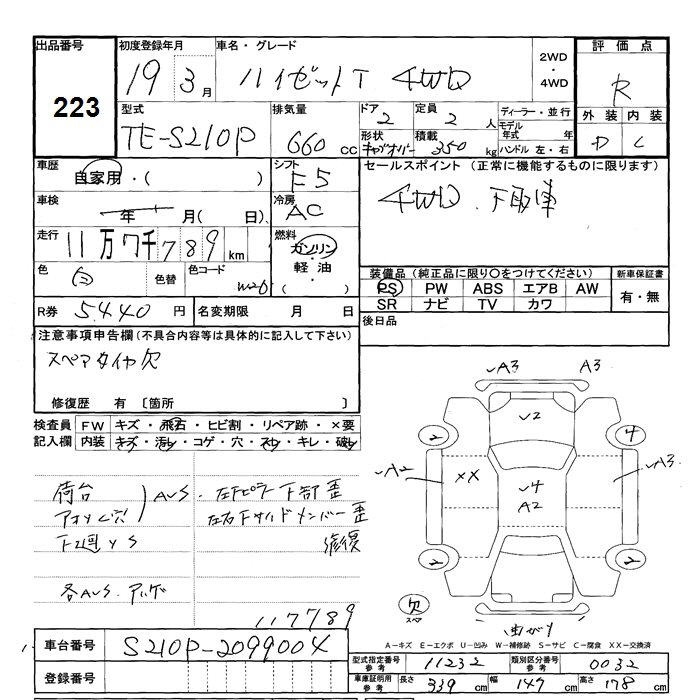 出品番号 初度登録年月 車名・グレード 2WD・4WD 評価点
223 19 3月 ハイゼットT 4WD R
型式 排気量 ドア 2 定員 2人 ディーラー・並行 外装 内装
TE-S210P 660cc 形状 キャブオーバー 積載 350kg モデル年式 年 ハンドル 左・右 D C
車歴 自家用・( ) シフト F5 セールスポイント (正常に機能するものに限ります)
車検 年 月( 日) 冷房 AC 4WD、下取車
走行 11万7千789km 燃料 ガソリン・軽油・( )
色 白 色替 色コード W26 装備品 (純正品に限り○をつけてください) 新車保証書
PS PW ABS エアB AW 有・無
SR ナビ TV カワ
R券 5440円 名変期限 月 日 後日品
注意事項申告欄 (不具合内容等は具体的に記入して下さい)
スペアタイヤ欠
修復歴 有 〔箇所 〕
検査員 FW キズ・飛石・ヒビ割・リペア跡・×要
記入欄 内装 キズ・汚レ・コゲ・穴・スレ・キレ・破レ
荷台 AUS. 左Fピラー下部歪
左右Fサイドメンバー歪
F2廻YS 修復
各AUS. アハゲ
117789
A3 A3
V2
2 4
A2 XX V4 A3
A2
2 2
欠 スペア
曲がり
A-キズ E-エクボ U-凹み W-補修跡 S-サビ C-腐食 XX-交換済
車台番号 S210P-2099004 型式指定番号 参考 11232 類別区分番号 参考 0032
登録番号 車庫証明用 参考 長さ 339cm 幅 147cm 高さ 178cm